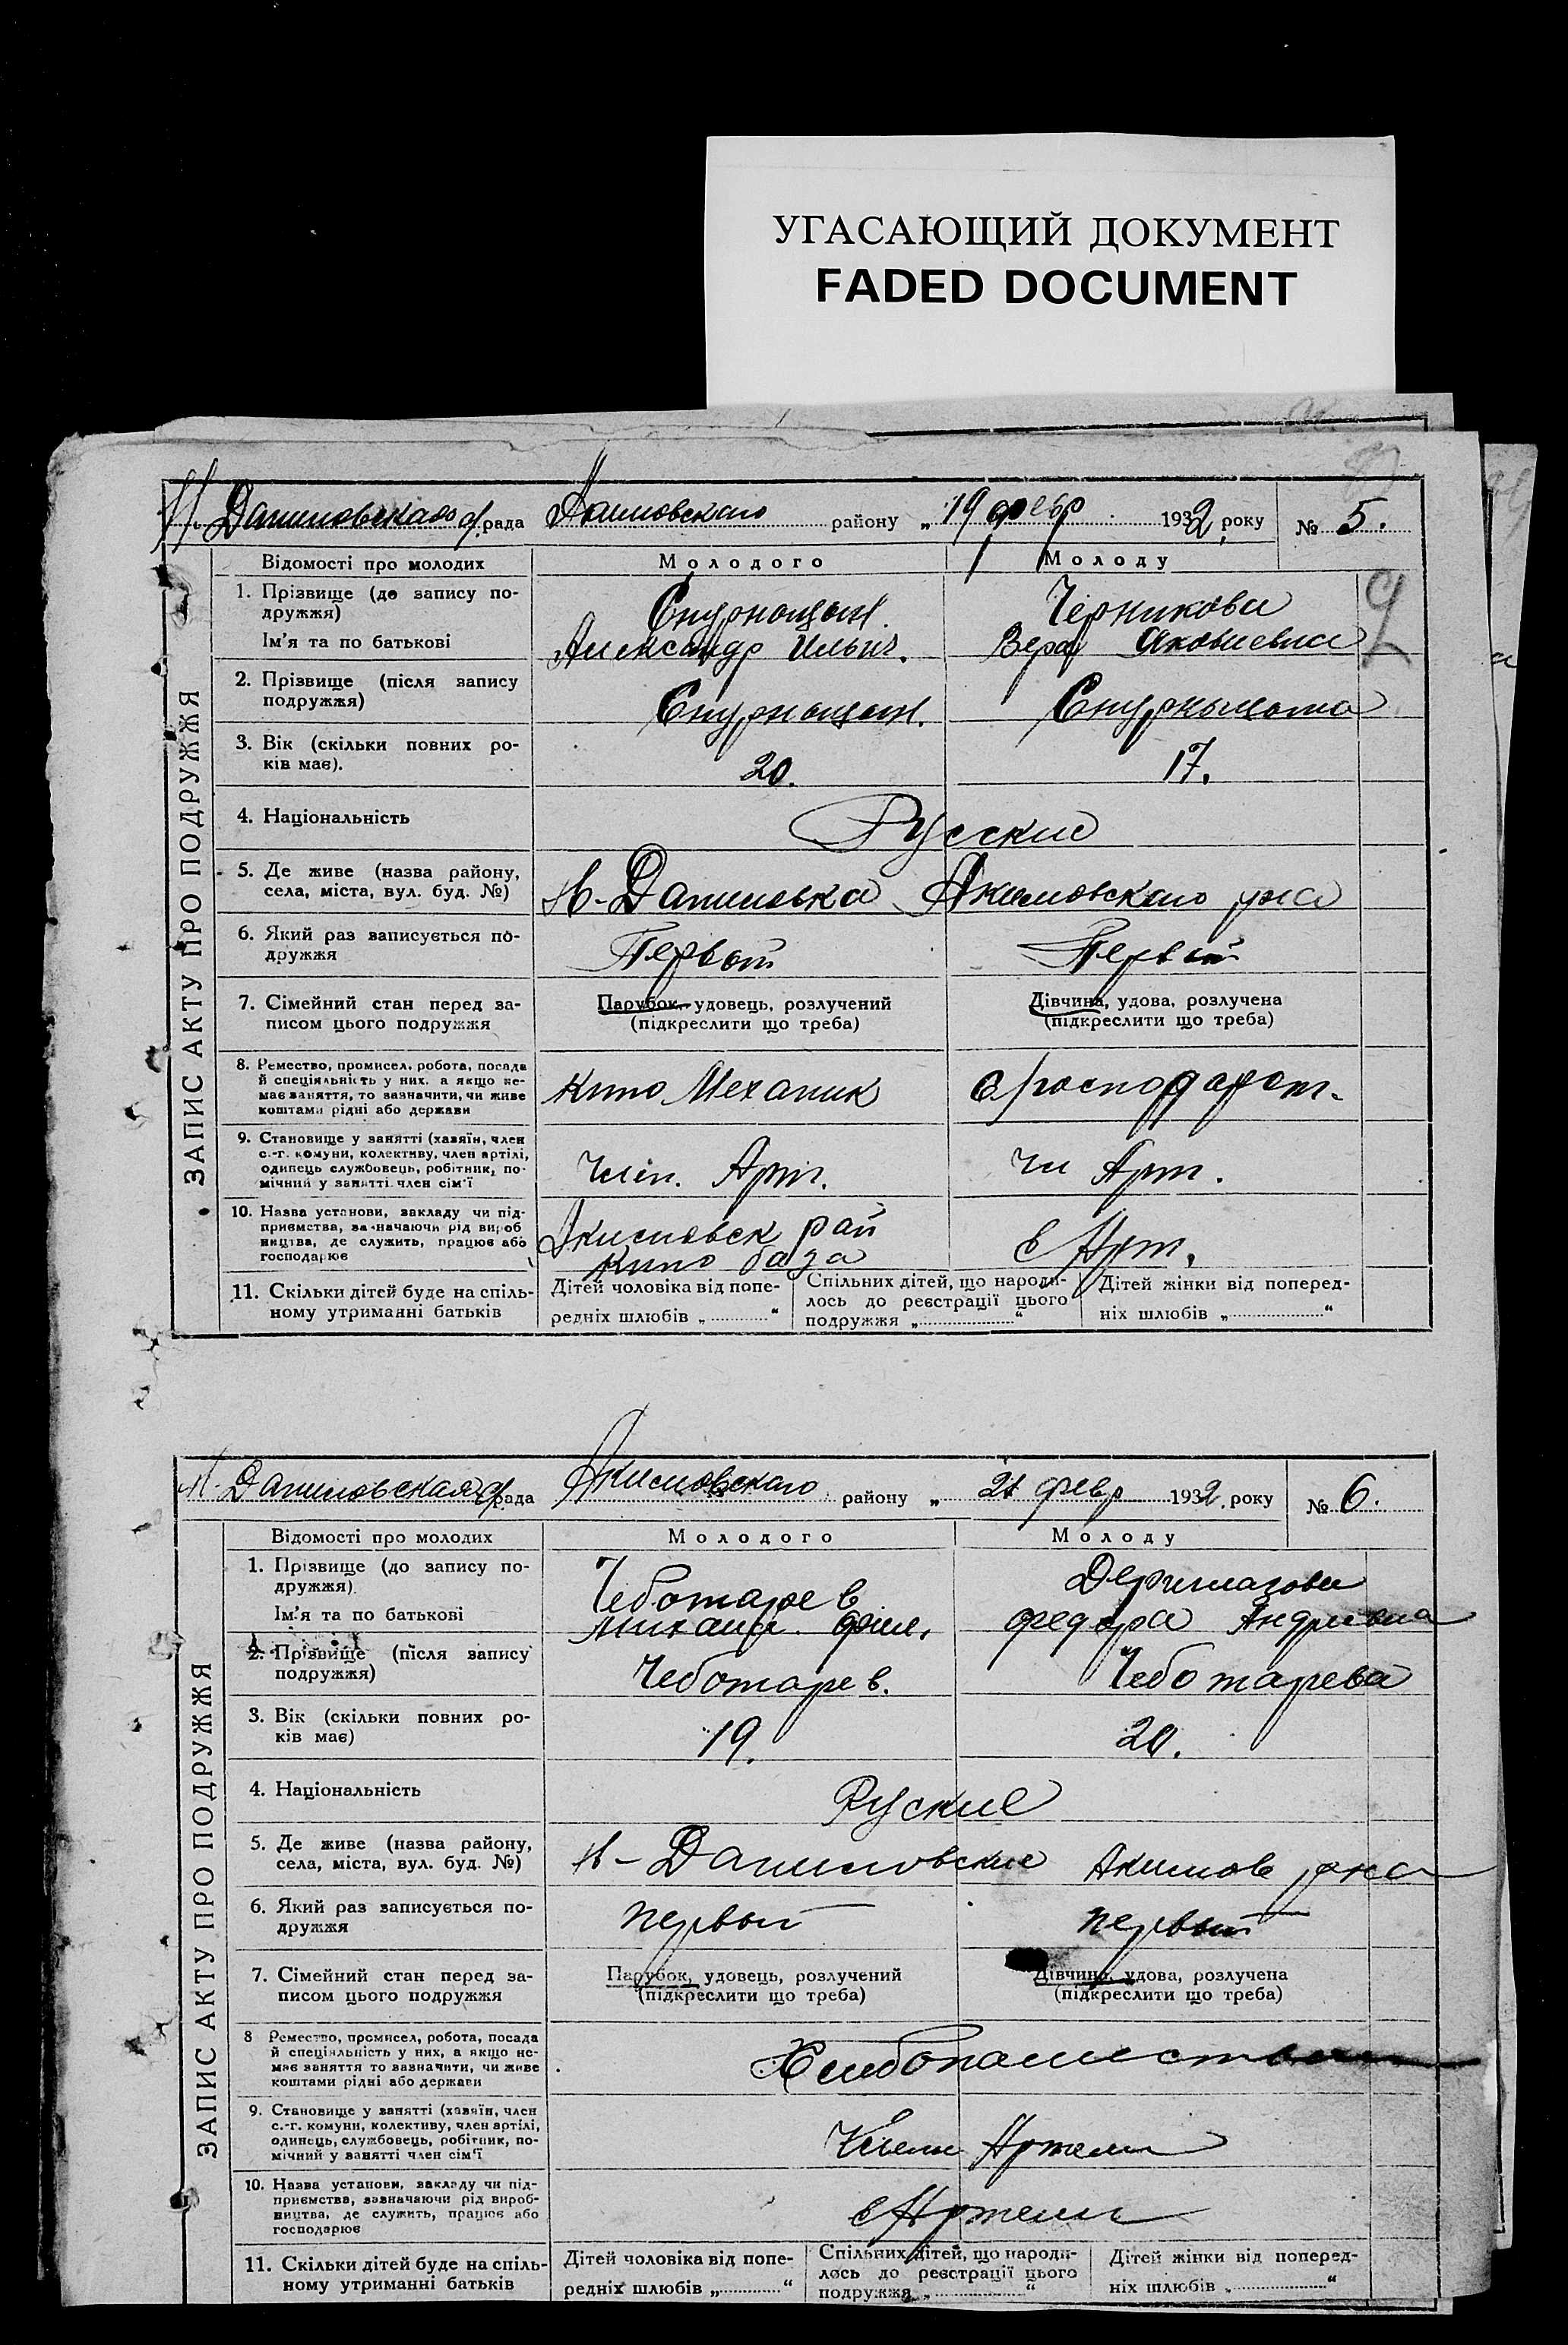 УГАСАЮЩИЙ ДОКУМЕНТ
FADED DOCUMENT
Н. Даниловская с/рада Акимовского району „19 февр 1932 року № 5.
ЗАПИС АКТУ ПРО ПОДРУЖЖЯ
Відомості про молодих Молодого Молоду
1. Прізвище (до запису по-
дружжя) Черникова
Ім'я та по батькові Александр Ильич. Вера Яковлевна
2. Прізвище (після запису
подружжя)
3. Вік (скільки повних ро-
ків має). 20. 17.
4. Національність Русские
5. Де живе (назва району,
села, міста, вул. буд. №) Н-Даниловка Акимовского рна
6. Який раз записується по-
дружжя Первый Первый
7. Сімейний стан перед за-
писом цього подружжя
Парубок, удовець, розлучений
(підкреслити що треба)
Дівчина, удова, розлучена
(підкреслити що треба)
8. Ремество, промисел, робота, посада
й спеціяльність у них, а якщо не-
має заняття, то зазначити, чи живе
коштами рідні або держави
Кино Механик
9. Становище у занятті (хазяїн, член
с.-г. комуни, колективу, член артілі,
одинець службовець, робітник, по-
мічний у занятті член сім'ї
Член. Арт. Чл Арт.
10. Назва установи, закладу чи під-
приємства, зазначаючи рід вироб
ництва, де служить, працює або
господарює
Акимовск рай
Кино база
в Арт.
11. Скільки дітей буде на спіль-
ному утриманні батьків
Дітей чоловіка від попе-
редніх шлюбів „ “
Спільних дітей, що народи-
лось до реєстрації цього
подружжя „ “
Дітей жінки від поперед-
ніх шлюбів „ “
Н. Даниловская с/рада Акимовского району „ 21 февр 1932. року № 6.
ЗАПИС АКТУ ПРО ПОДРУЖЖЯ
Відомості про молодих Молодого Молоду
1. Прізвище (до запису по-
дружжя) Чеботарев
Ім'я та по батькові Михаил Фил. Федора Андреевна
2. Прізвище (після запису
подружжя) Чеботарев. Чеботарева
3. Вік (скільки повних ро-
ків має) 19. 20.
4. Національність Руские
5. Де живе (назва району,
села, міста, вул. буд. №) Н-Даниловские Акимов рна
6. Який раз записується по-
дружжя первый первый
7. Сімейний стан перед за-
писом цього подружжя
Парубок, удовець, розлучений
(підкреслити що треба)
Дівчина, удова, розлучена
(підкреслити що треба)
8 Ремество, промисел, робота, посада
й спеціяльність у них, а якщо не-
має заняття то зазначити, чи живе
коштами рідні або держави
9. Становище у занятті (хазяїн, член
с.-г. комуни, колективу, член артілі,
одинець, службовець, робітник, по-
мічний у занятті член сім'ї
Члены Артели
10. Назва установи, закладу чи під-
приємства, зазначаючи рід вироб-
ництва, де служить, працює або
господарює
в Артели
11. Скільки дітей буде на спіль-
ному утриманні батьків
Дітей чоловіка від попе-
редніх шлюбів „ “
Спільних дітей, що народи-
лось до реєстрації цього
подружжя „ “
Дітей жінки від поперед-
ніх шлюбів „ “